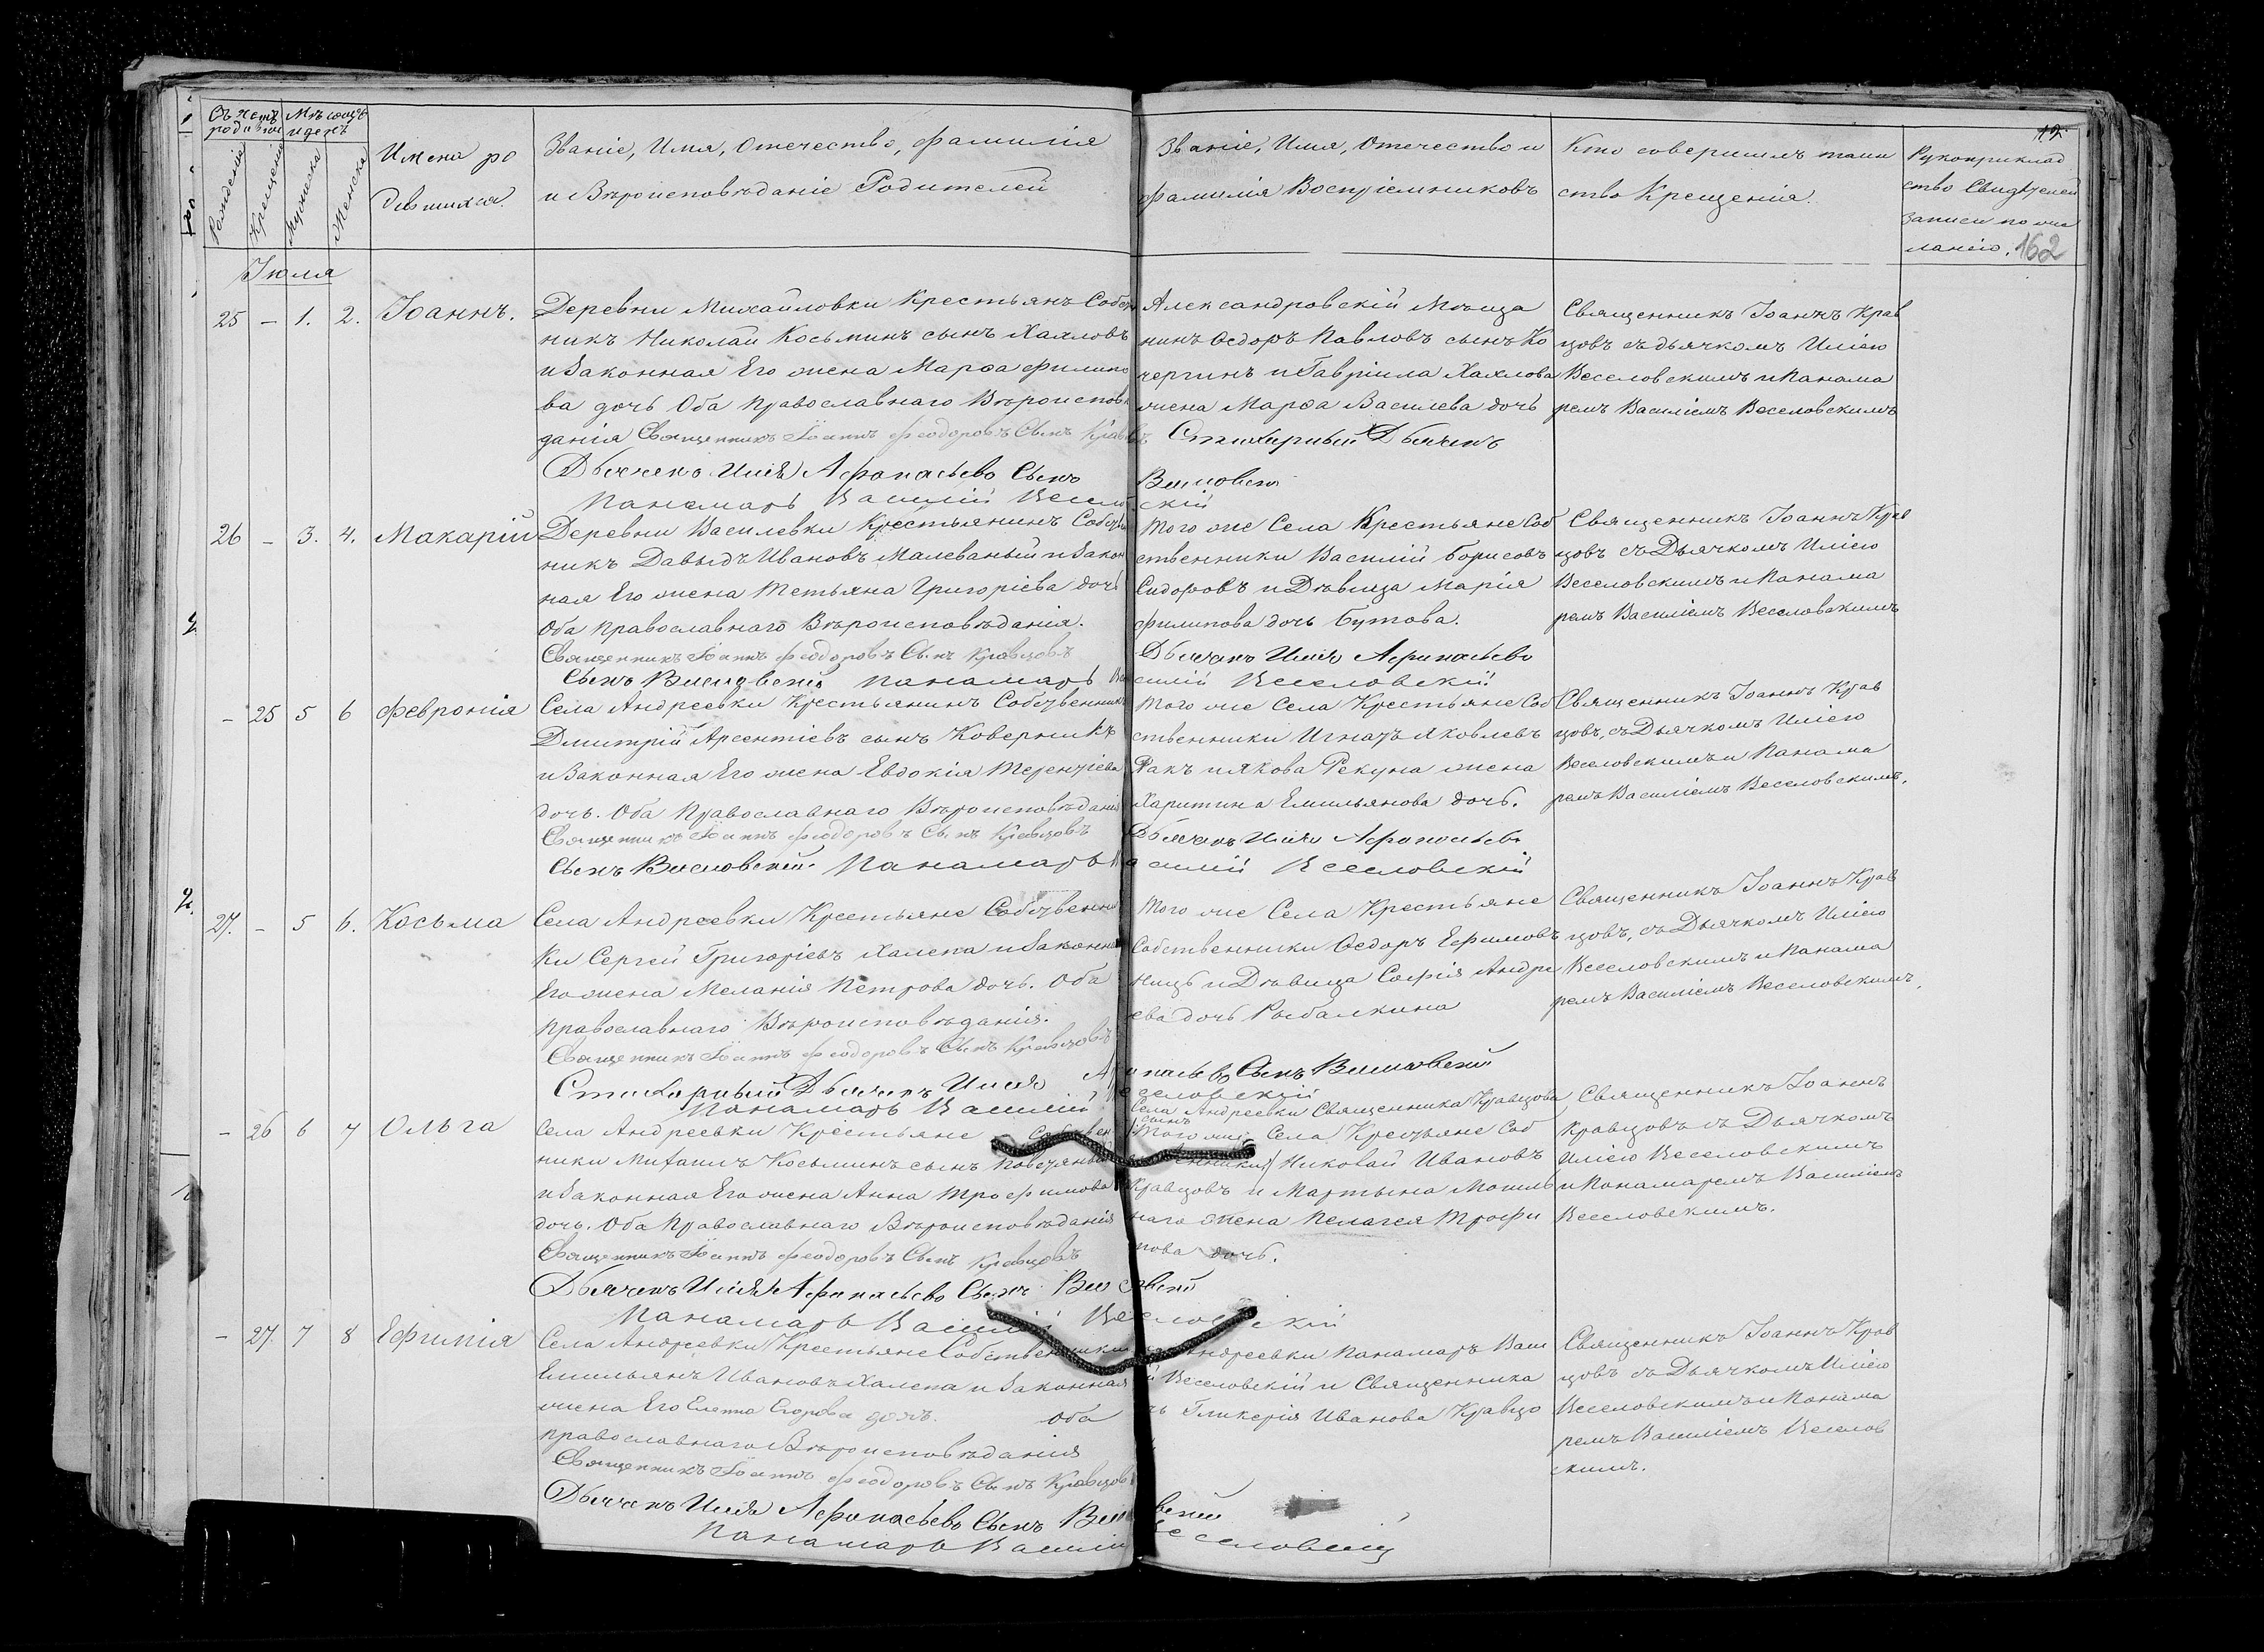 Счетъ родившихся
Мѣсяцъ и день
Рожденія
Крещенія
Мужеска
Женска
Имена ро
дившихся.
Званіе, Имя, Отечество, фамилія
и Вѣроисповѣданіе Родителей
Званіе, Имя, Отечество и
фамилія Воспріемниковъ
Кто совершилъ таин
ство Крещенія.
Рукоприклад
ство Свидѣтелей
записи по же
ланію.
162
Іюля
25 — 1. 2. Іоаннъ.
Деревни Михайловки Крестьянъ Собствен
никъ Николай Косьминъ сынъ Хахловъ
и Законная Его жена Марѳа Филипо
ва дочь Оба Православнаго Вѣроисповѣ
данія Священникъ Іоаннъ Феодоровъ Сынъ Кравцовъ
Дьячекъ Илія Афонасьевъ Сынъ
Панамарь Василій Весело
Александровскій Мѣща
нинъ Ѳедоръ Павловъ сынъ Ко
чергинъ и Гавріила Хахлова
жена Марѳа Василева дочь
Стихарный Дьячекъ
скій
Священникъ Іоаннъ Крав
цовъ съ дьячкомъ Иліею
Веселовскимъ и Панама
ремъ Василіемъ Веселовскимъ
26 — 3. 4. Макарій
Деревни Василевки Крестьянинъ Собствен
никъ Давыдъ Ивановъ Малеваный и Закон
ная Его жена Тетьяна Григоріева дочь
Оба Православнаго Вѣроисповѣданія.
Священникъ Іоаннъ Феодоровъ Сынъ Кравцовъ
Сынъ Веселовскій Панамарь Ва
Того же Села Крестьяне Соб
ственники Василій Борисовъ
Сидоровъ и Дѣвица Марія
Филипова дочь Бутова.
Дьячекъ Илія Афонасьевъ
силій Веселовскій
Священникъ Іоаннъ Крав
цовъ съ Дьячкомъ Иліею
Веселовскимъ и Панама
ремъ Василіемъ Веселовскимъ
— 25 5 6 Февронія
Села Андреевки Крестьянинъ Собственникъ
Дмитрій Арсентіевъ сынъ Коверникъ
и Законная Его жена Евдокія Терентіева
дочь. Оба Православнаго Вѣроисповѣданія
Священникъ Іоаннъ Феодоровъ Сынъ Кравцовъ
Сынъ Веселовскій. Панамарь В
Того же Села Крестьяне Соб
ственники Игнатъ Яковлевъ
Ракъ и Якова Рекуна жена
Харитина Емильянова дочь.
Дьячекъ Илія Афонасьевъ
асилій Веселовскій
Священникъ Іоаннъ Крав
цовъ, съ Дьячкомъ Иліею
Веселовскимъ и Панама
ремъ Василіемъ Веселовскимъ.
27. — 5 6. Косьма
Села Андреевки Крестьяне Собственни
ки Сергей Григоріевъ Халепа и Законная
Его жена Меланія Петрова дочь. Оба
Православнаго Вѣроисповѣданія.
Священникъ Іоаннъ Феодоровъ Сынъ Кравцовъ
Стихарный Дьячекъ Илія Аф
Панамарь Василій
Того же Села Крестьяне
Собственники Ѳедоръ Ефимовъ
и Дѣвица Софія Андре
ева дочь Рыбалкина
онасьевъ Сынъ Веселовскій
еселовскій
Священникъ Іоаннъ Крав
цовъ, съ Дьячкомъ Иліею
Веселовскимъ и Панама
ремъ Василіемъ Веселовскимъ.
— 26 6 7 Ольга
Села Андреевки Крестьяне Собствен
ники Михаилъ Косьминъ сынъ
и Законная Его жена Анна Трофимова
дочь. Оба Православнаго Вѣроисповѣданія
Священникъ Іоаннъ Феодоровъ Сынъ Кравцовъ
Дьячекъ Илія Афонасьевъ Сынъ Весе
Панамарь Василій Ве
Села Андреевки Священника Кравцова
сынъ
Того же Села Крестьяне Соб
ственники Николай Ивановъ
Кравцовъ и Мартына Мошль
наго жена Пелагея Трофи
мова дочь.
ловскій
селовскій
Священникъ Іоаннъ
Кравцовъ съ Дьячкомъ
Иліею Веселовскимъ
и Понамаремъ Василіемъ
Веселовскимъ.
— 27. 7 8 Ефимія
Села Андреевки Крестьяне Собственники
Емильянъ Ивановъ Халепа и Законная
жена Его Елена Егорова дочь. Оба
православнаго Вѣроисповѣданія
Священникъ Іоаннъ Феодоровъ Сынъ Кравцовъ
Дьячекъ Илія Афонасьевъ Сынъ Весе
Панамарь Василій
Андреевки Панамарь Васи
й Веселовскій и Священника
Гликерія Иванова Кравцо
вскій
Веселовскій
Священникъ Іоаннъ Крав
цовъ съ Дьячкомъ Иліею
Веселовскимъ и Понама
ремъ Василіемъ Веселов
скимъ.